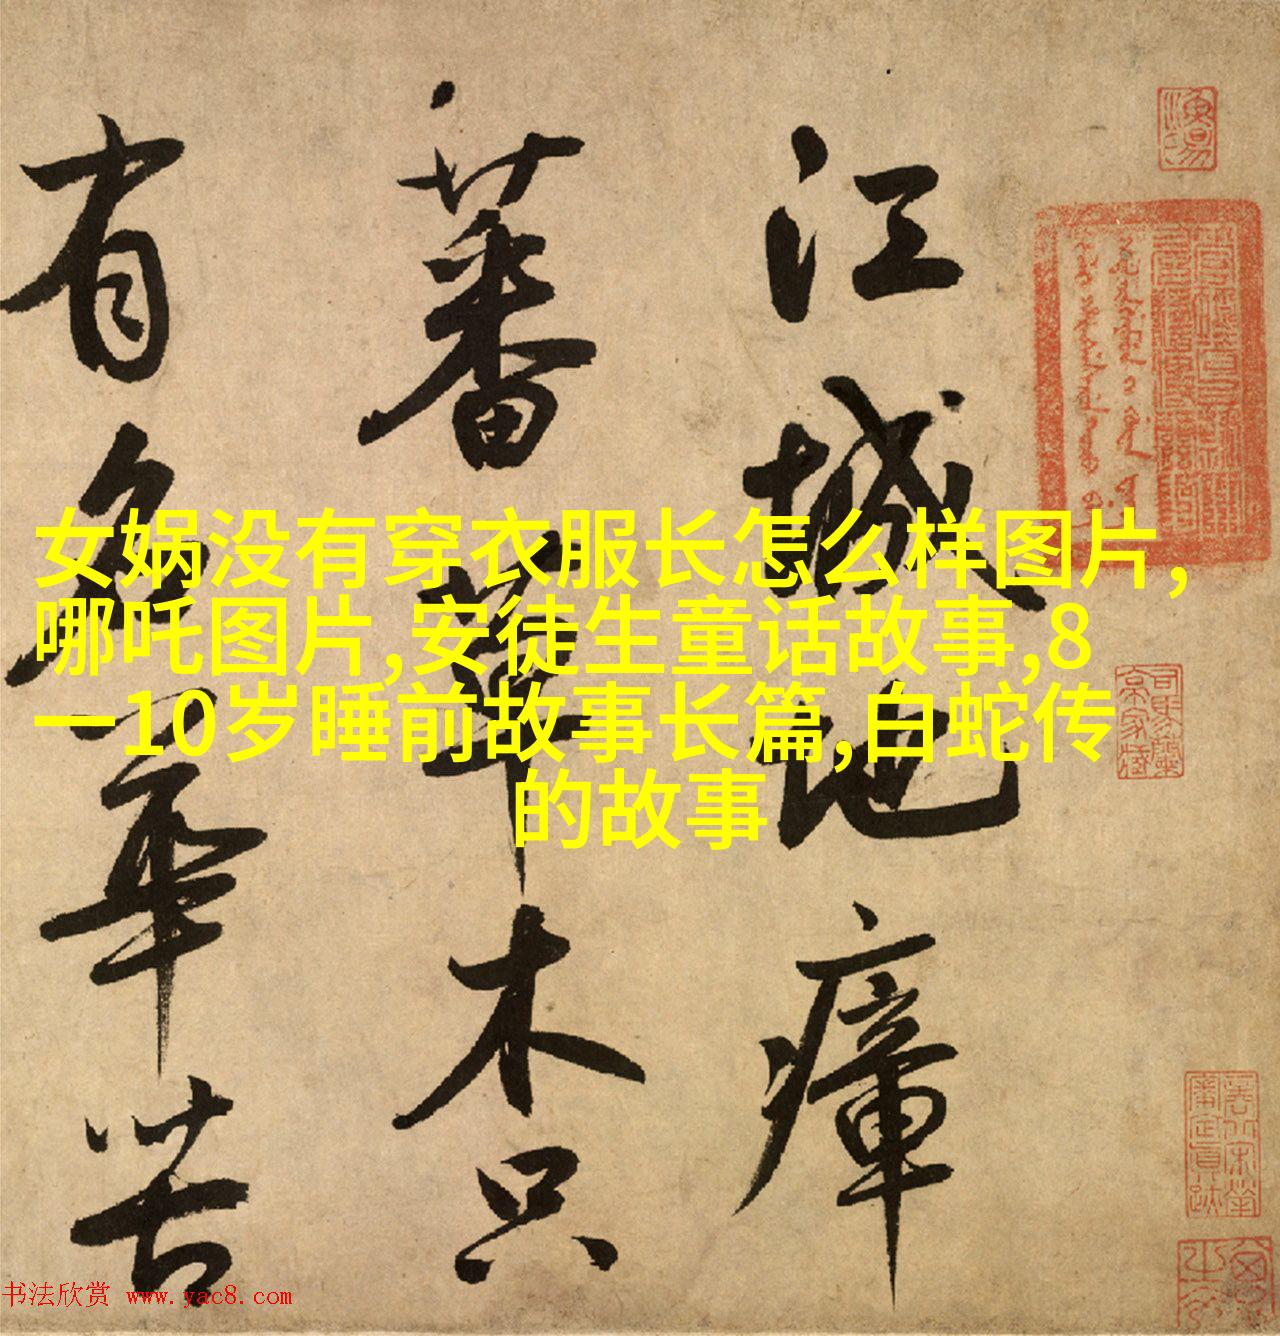 女娲没有穿衣服长怎么样图片,
哪吒图片,安徒生童话故事,8
一10岁睡前故事长篇,白蛇传
的故事
江城地瘴
蕃草木只
有名華苦
书法欣赏 www.yac8.com